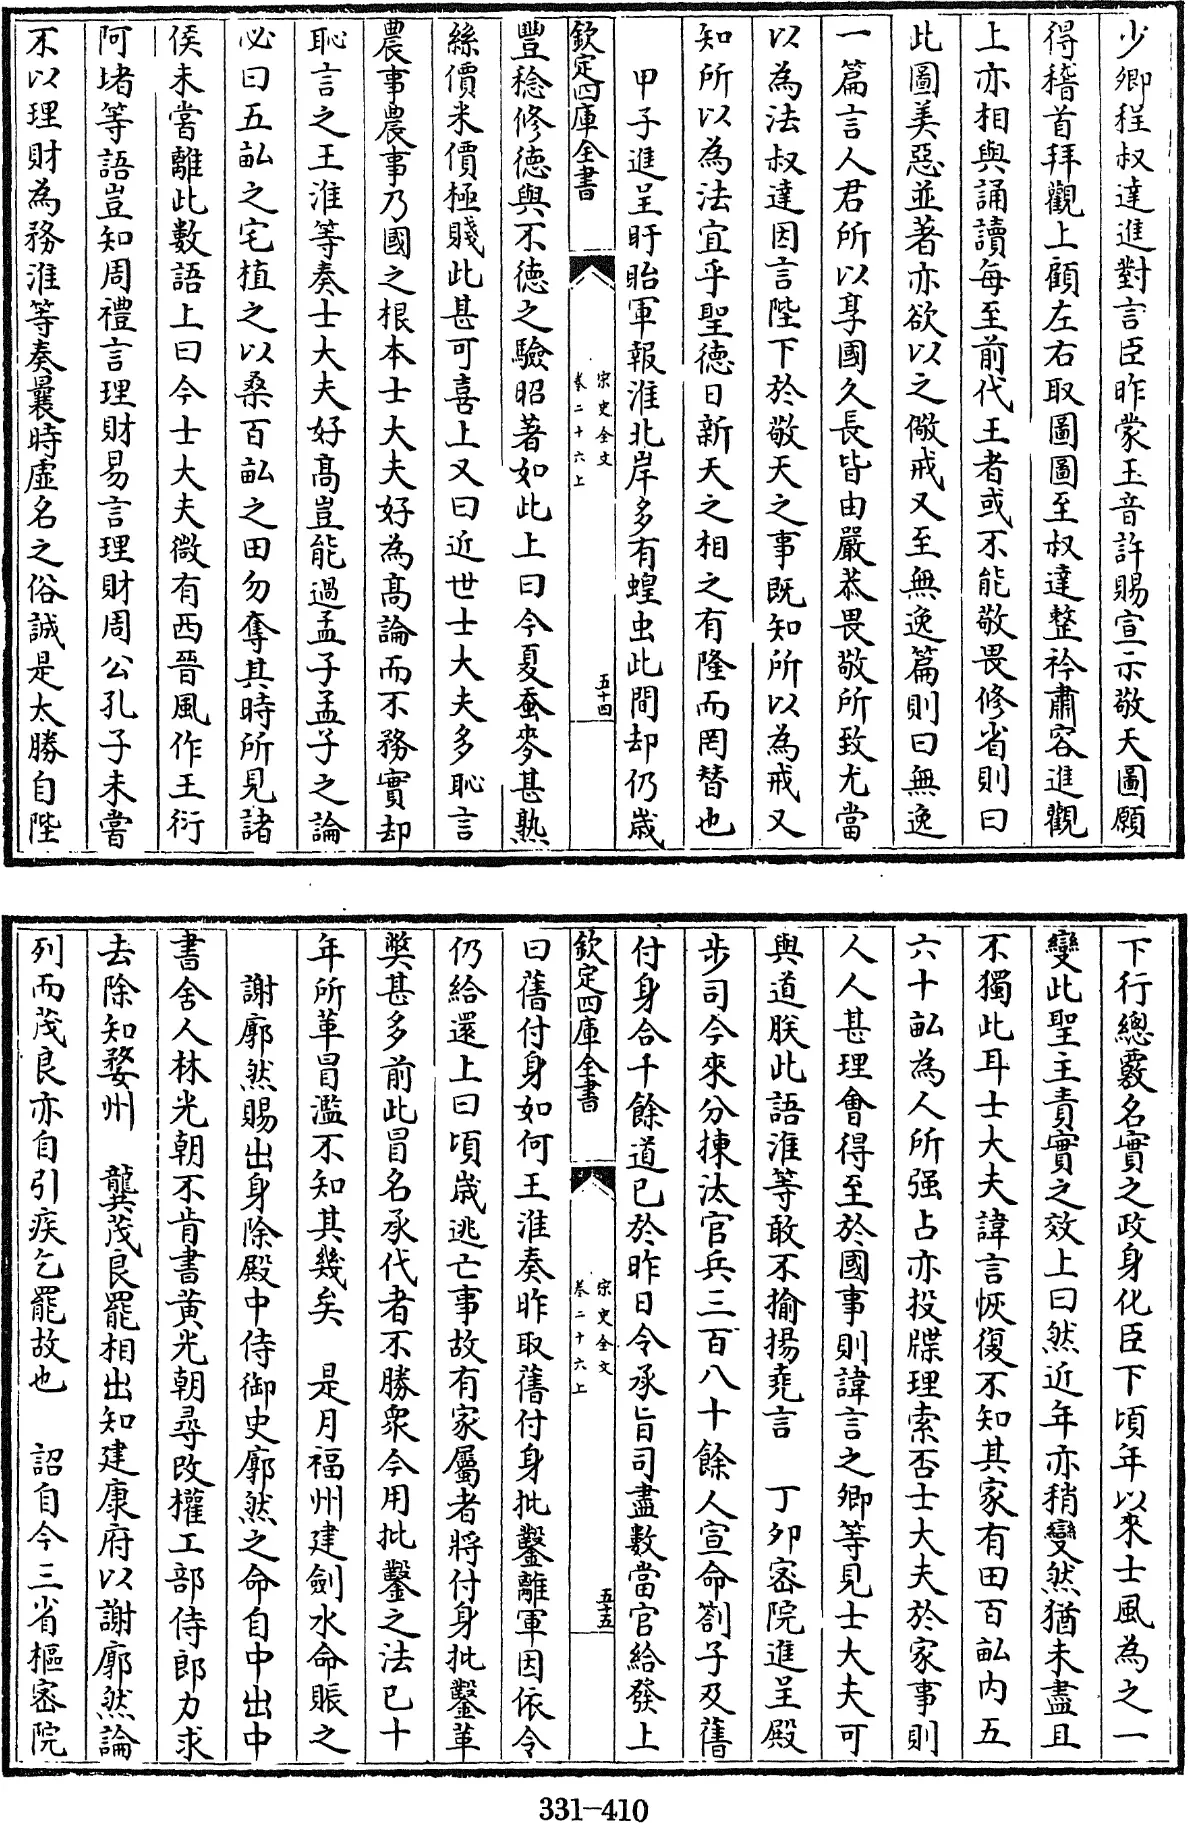 少卿程叔達進對言臣昨蒙玉音許賜宣示敬天圖願
得稽首拜觀上顧左右取圖圖至叔達整衿肅容進觀
上亦相與誦讀每至前代王者或不能敬畏修省則曰
此圖美惡並著亦欲以之儆戒又至無逸篇則曰無逸
一篇言人君所以享國久長皆由嚴恭畏敬所致尤當
以為法叔達因言陛下於敬天之事既知所以為戒又
知所以為法宜乎聖德日新天之相之有隆而罔替也
甲子進呈盱眙軍報淮北岸多有蝗虫此間却仍歲
欽定四庫全書
宋史全文
卷二十六上
五十四
豐稔修德與不德之驗昭著如此上曰今夏蚕麥甚熟
絲價米價極賤此甚可喜上又曰近世士大夫多恥言
農事農事乃國之根本士大夫好為髙論而不務實却
恥言之王淮等奏士大夫好髙豈能過孟子孟子之論
必曰五畝之宅植之以桑百畝之田勿奪其時所見諸
侯未嘗離此數語上曰今士大夫微有西晉風作王衍
阿堵等語豈知周禮言理財易言理財周公孔子未嘗
不以理財為務淮等奏曩時虛名之俗誠是太勝自陛
下行總覈名實之政身化臣下頃年以來士風為之一
變此聖主責實之效上曰然近年亦稍變然猶未盡且
不獨此耳士大夫諱言恢復不知其家有田百畝内五
六十畝為人所强占亦投牒理索否士大夫於家事則
人人甚理㑹得至於國事則諱言之卿等見士大夫可
與道朕此語淮等敢不揄揚堯言　丁夘密院進呈殿
步司今來分揀汰官兵三百八十餘人宣命劄子及舊
付身合千餘道已於昨日令承旨司盡數當官給發上
欽定四庫全書
宋史全文
卷二十六上
五十五
曰舊付身如何王淮奏昨取舊付身批鑿離軍因依令
仍給還上曰頃歲逃亡事故有家屬者將付身批鑿革
獘甚多前此冒名承代者不勝衆今用批鑿之法已十
年所革冒濫不知其幾矣　是月福州建劍水命賑之
謝廓然賜出身除殿中侍御史廓然之命自中出中
書舍人林光朝不肯書黄光朝尋改權工部侍郎力求
去除知婺州　龔茂良罷相出知建康府以謝廓然論
列而茂良亦自引疾乞罷故也　詔自今三省樞密院
331-410